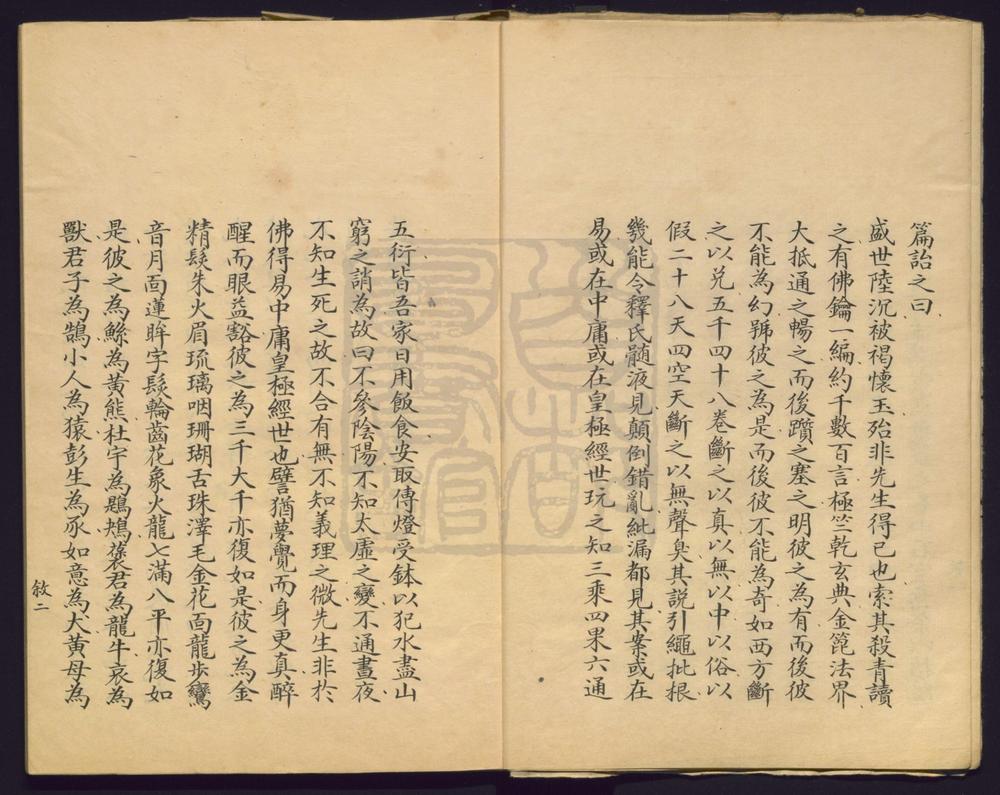 篇詒之曰
盛世陸沉被褐懷玉殆非先生得已也索其殺青讀
之有佛鑰一編約千數百言極竺乾玄典金篦法界
大抵通之暢之而後躓之塞之明彼之為有而後彼
不能為幻號彼之為是而後彼不能為奇如西方斷
之以兌五千四十八卷斷之以真以無以中以俗以
假二十八天四空天斷之以無聲臭其説引繩批根
幾能令釋氏髓液見顛倒錯亂紕漏都見其案或在
易或在中庸或在皇極經世玩之知三乘四果六通
五衍皆吾家日用飯食安取傳燈受鉢以犯水盡山
窮之誚為故曰不參陰陽不知太虛之變不通晝夜
不知生死之故不合有無不知義理之微先生非於
佛得易中庸皇極經世也譬猶夢覺而身更真醉
醒而眼益豁彼之為三千大千亦復如是彼之為金
精髮朱火眉琉璃咽珊瑚舌珠澤毛金花面龍步鸞
音月面蓮眸字髮輪齒花象火龍七滿八平亦復如
是彼之為鯀為黃熊杜宇為鶗鴂襃君為龍牛哀為
獸君子為鵠小人為猿彭生為豕如意為犬黃母為
敘二